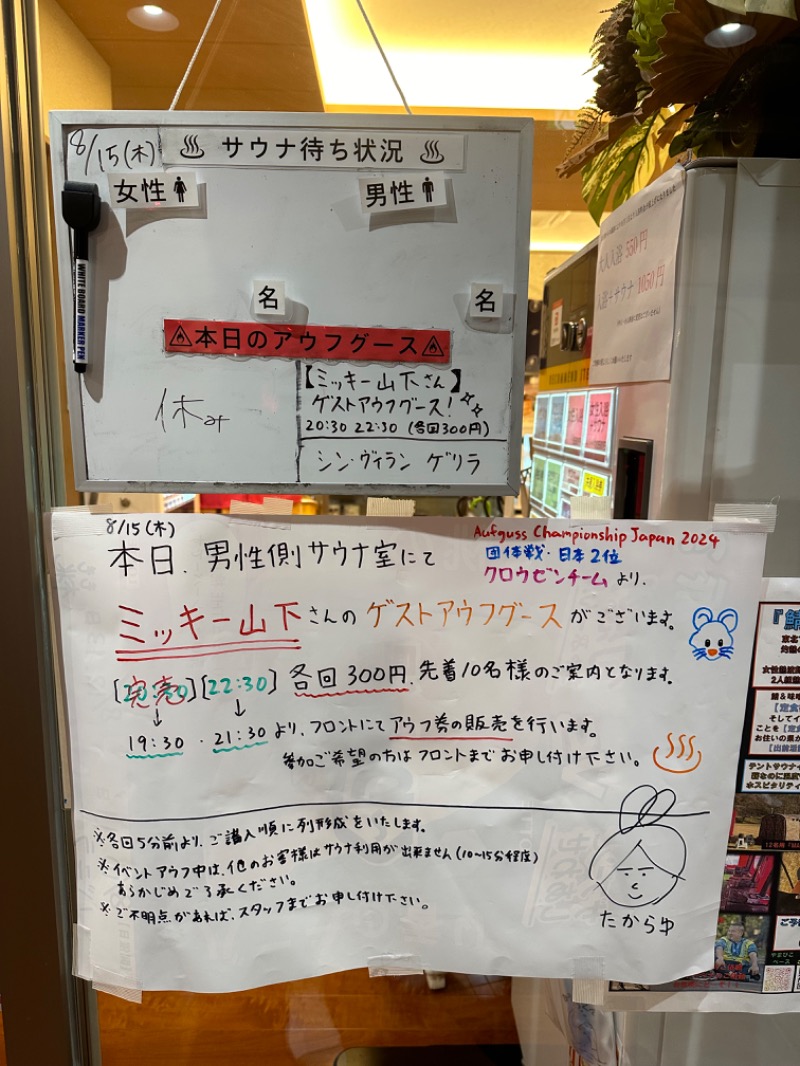 8/15(木)
サウナ待ち状況
女性
男性
名
名
本日のアウフグース
休み
【ミッキー山下さん】
ゲストアウフグース!
20:30 22:30 (各回300円)
シン・ヴィラン ゲリラ
WHITE BOARD MARKER PEN
大人入浴 550円
入浴+サウナ 1050円
8/15(木)
本日、男性側サウナ室にて
Aufguss Championship Japan 2024
団体戦・日本2位
クロウゼンチームより、
ミッキー山下さんのゲストアウフグースがございます。
[完売][22:30] 各回300円、先着10名様のご案内となります。
↓ ↓
19:30 ・ 21:30 より、フロントにてアウフ券の販売を行います。
参加ご希望の方はフロントまでお申し付け下さい。
※各回5分前より、ご購入順に列形成をいたします。
※イベントアウフ中は、他のお客様はサウナ利用が出来ません(10〜15分程度)
あらかじめご了承ください。
※ご不明点があれば、スタッフまでお申し付け下さい。
たからゆ